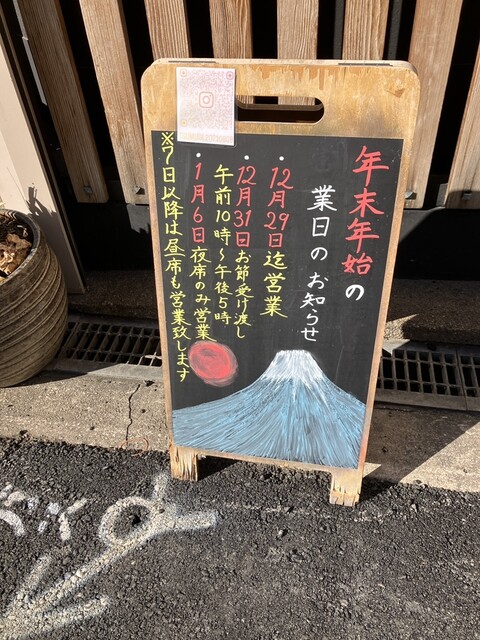 年末年始の
業日のお知らせ
・12月29日迄営業
・12月31日お節受け渡し
午前10時～午後5時
・1月6日夜席のみ営業
※7日以降は昼席も営業致します